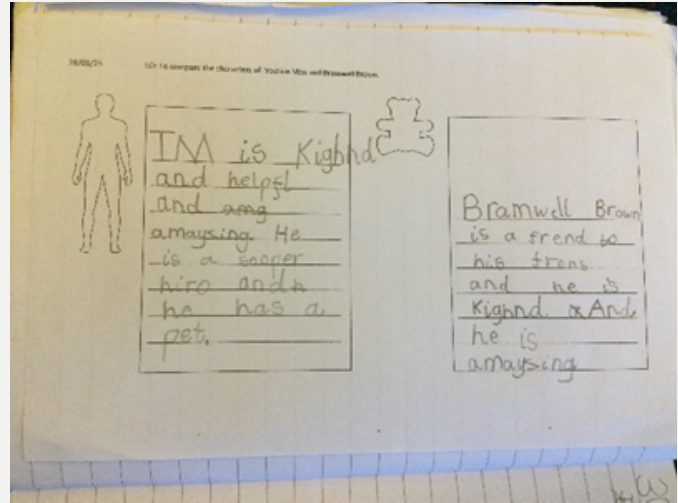 LO: To compare the characters of Traction Man and Bramwell Brown.
IM is Kighnd
and helpfl
and amg
amaysing. He
is a sooper
hiro and h
he has a
pet.
Bramwell Brown
is a frend to
his frens
and he is
Kighnd. And
he is
amaysing